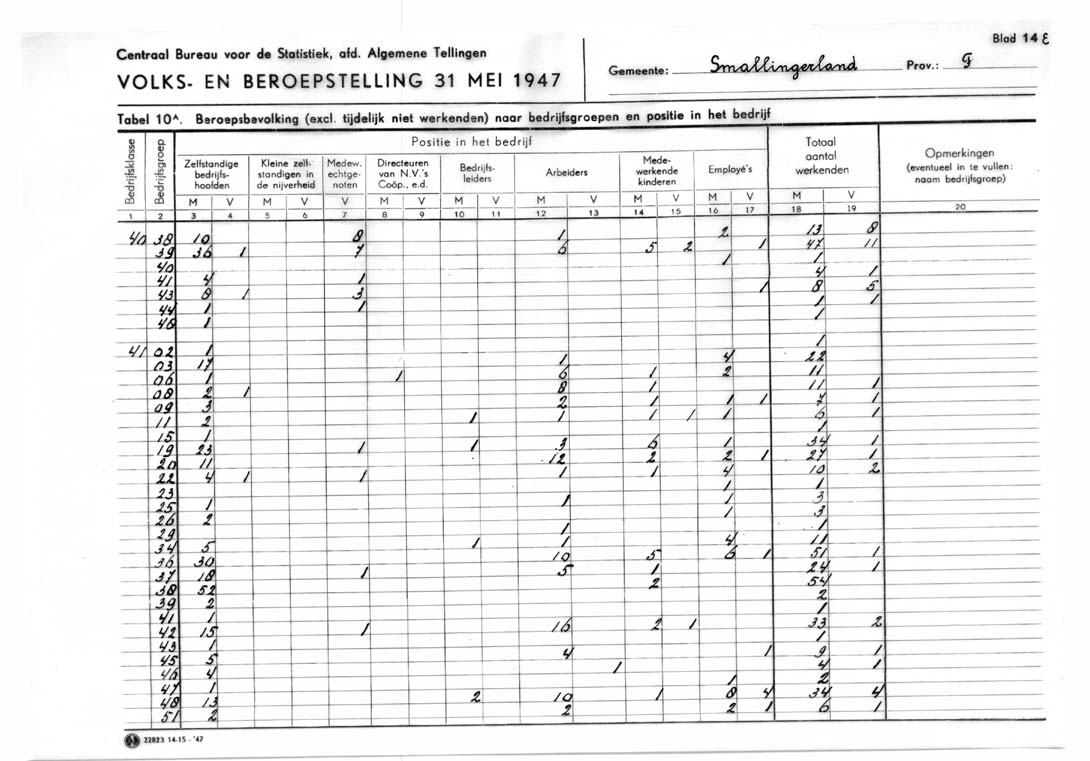 Blad 14 E
Centraal Bureau voor de Statistiek, afd. Algemene Tellingen
VOLKS- EN BEROEPSTELLING 31 MEI 1947
Gemeente: Smallingerland Prov.: F
Tabel 10A. Beroepsbevolking (excl. tijdelijk niet werkenden) naar bedrijfsgroepen en positie in het bedrijf
Bedrijfsklasse
Bedrijfsgroep
Positie in het bedrijf
Zelfstandige
bedrijfs-
hoofden
Kleine zelf-
standigen in
de nijverheid
Medew.
echtge-
noten
Directeuren
van N.V.'s
Coöp., e.d.
Bedrijfs-
leiders
Arbeiders
Mede-
werkende
kinderen
Employé's
Totaal
aantal
werkenden
Opmerkingen
(eventueel in te vullen:
naam bedrijfsgroep)
M V M V V M V M V M V M V M V M V
1 2 3 4 5 6 7 8 9 10 11 12 13 14 15 16 17 18 19 20
40 38 10 8 1 2 13 8
39 36 1 7 6 5 2 1 47 11
40 1 1
41 4 1 4 1
43 8 1 3 1 8 5
44 1 1 1 1
46 1 1
41 02 1 1
03 17 1 4 22
06 1 1 6 1 2 11
08 2 1 8 1 11 1
09 3 2 1 1 1 7 1
11 2 1 1 1 1 1 6 1
15 1 1
19 23 1 1 3 6 1 34 1
20 11 12 2 2 1 27 1
22 4 1 1 1 1 4 10 2
23 1 1
25 1 1 1 3
26 2 1 3
29 1 1
34 5 1 1 4 11
36 30 10 5 6 1 51 1
37 18 1 5 1 24 1
38 52 2 54
39 2 2
41 1 1
42 15 1 16 2 1 33 2
43 1 1
45 5 4 1 9 1
46 4 1 4 1
47 1 1 2
48 13 2 10 1 8 4 34 4
51 2 2 2 1 6 1
22823 14-15 - '47